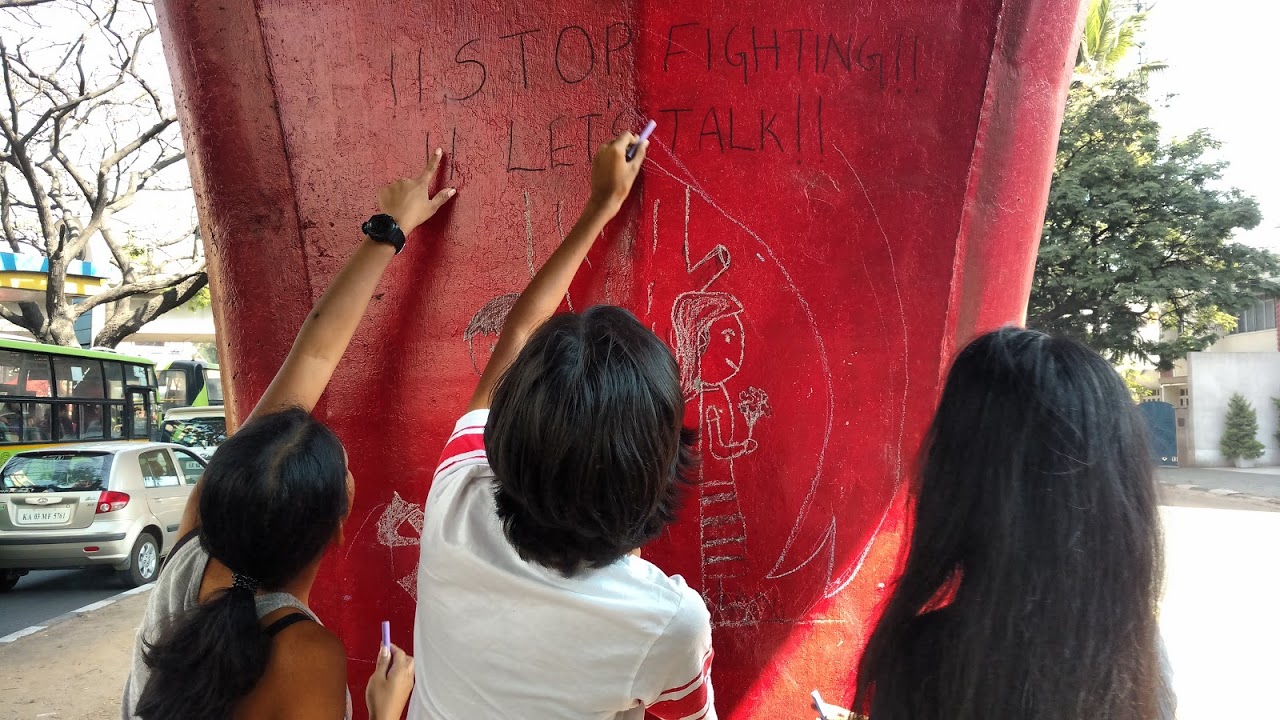 !! STOP FIGHTING!!
!! LET'S TALK!!
KA 03 MF 5761